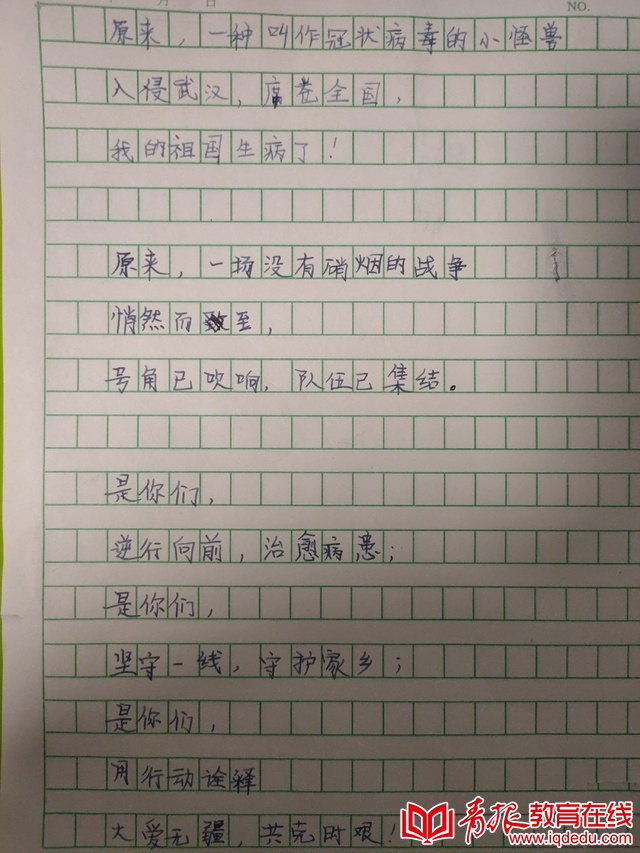 月 日 NO.
原来，一种叫作冠状病毒的小怪兽
入侵武汉，席卷全国，
我的祖国生病了！
原来，一场没有硝烟的战争
悄然而至，
号角已吹响，队伍已集结。
是你们，
逆行向前，治愈病患；
是你们，
坚守一线，守护家乡；
是你们，
用行动诠释
大爱无疆，共克时艰！
青报教育在线
www.iqdedu.com